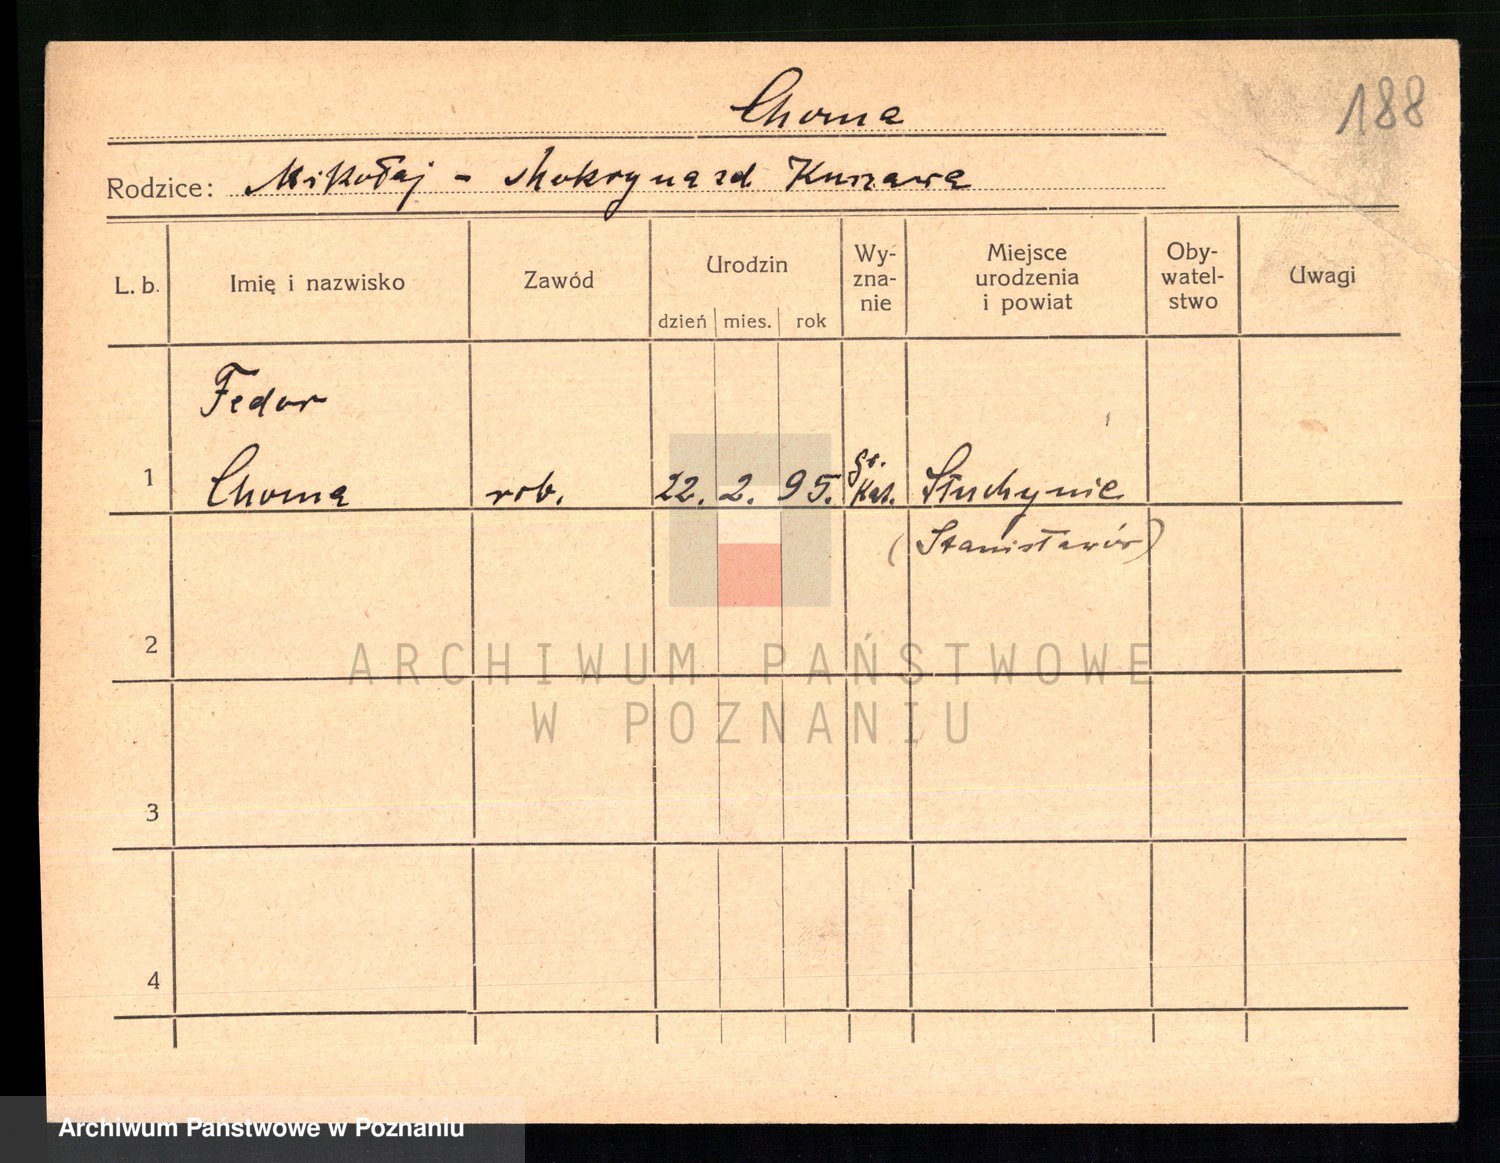 188
Choma
Rodzice: Mikołaj -
L. b. Imię i nazwisko Zawód Urodzin Wy-zna-nie Miejsce urodzenia i powiat Oby-watel-stwo Uwagi
dzień mies. rok
Fedor
1 Choma rob. 22. 2. 95. gr. Kat. Słuchynie
(Stanisławów)
2
ARCHIWUM PAŃSTWOWE
W POZNANIU
3
4
Archiwum Państwowe w Poznaniu